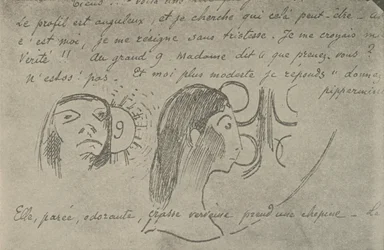 Le profil est anguleux et je cherche qui celà peut-être
c'est moi, je me résigne sans tristesse. Je me croyais
Vérité !! Au grand 9 Madame dit "que prenez vous ?
N'estos! pas. Et moi plus modeste je réponds "donne
9
Elle, parée, odorante, grasse verveine prend une chopine - Le